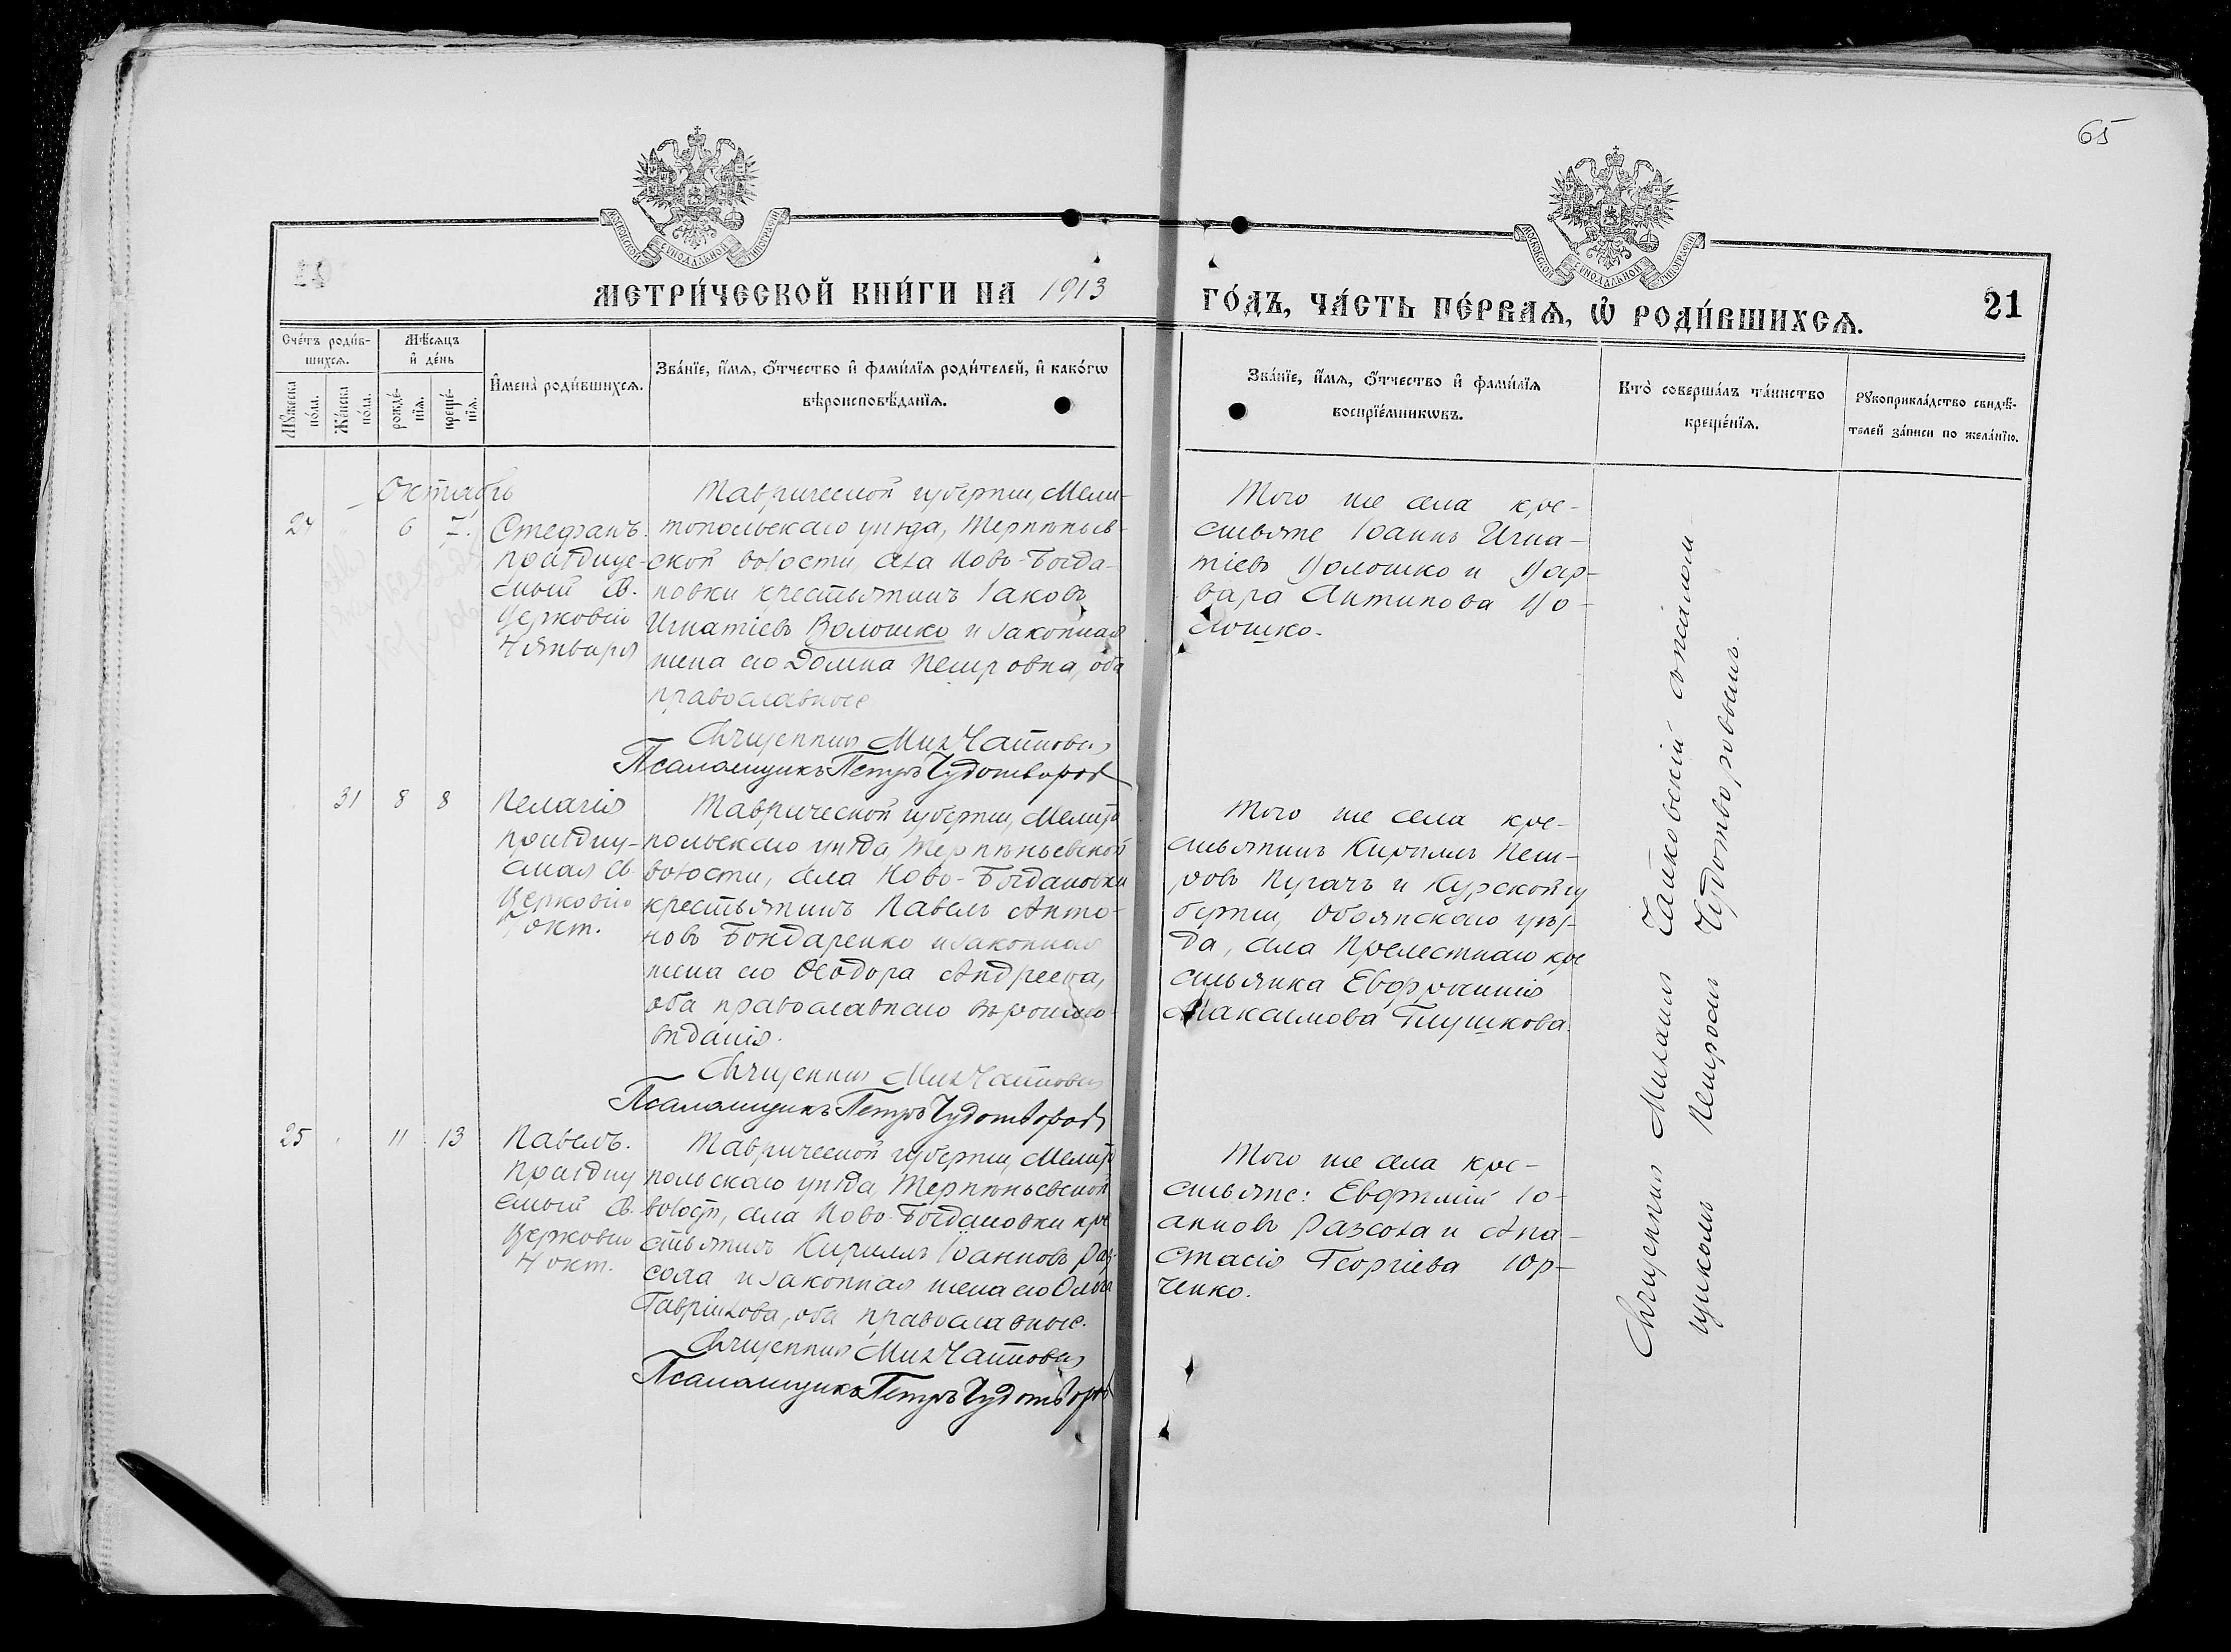 65
МОСКОВСКОЙ СѴНОДАЛЬНОЙ ТИПОГРАФІИ
МОСКОВСКОЙ СѴНОДАЛЬНОЙ ТИПОГРАФІИ
МЕТРИ́ЧЕСКОЙ КНИ́ГИ НА 1913
ГО́ДЪ, ЧА́СТЬ ПЕ́РВАѦ, Ѡ҆ РОДИ́ВШИХСѦ.
21
Сче́тъ роди́в-
шихсѧ.
Мꙋ́жеска
по́ла.
Же́нска
по́ла.
Мѣ́сѧцъ
и҆ де́нь
рожде́-
нїѧ.
креще́-
нїѧ.
И҆мена̀ роди́вшихсѧ.
Зва́нїе, и҆́мѧ, ѻ҆́тчество и҆ фами́лїѧ роди́телей, и҆ како́гѡ
вѣроисповѣ́данїѧ.
Зва́нїе, и҆́мѧ, ѻ҆́тчество и҆ фами́лїѧ
воспрїе́мникѡвъ.
Кто̀ соверша́лъ та́инство
креще́нїѧ.
Рꙋкоприкла́дство свидѣ́-
телей за́писи по жела́нїю.
Октябрь
24 6
Стефанъ.
празднуе-
емый Св.
Церковію
4 января
Таврической губерніи, Мели-
топольскаго уѣзда, Терпѣньев-
ской волости, села Ново-Богда-
новки крестьянинъ Іаковъ
Игнатіевъ Волошко и законная
жена его Домна Петровна, оба
православные
Священник Мих Чайковскі
Псаломщикъ Петръ Чудотворов
Того же села кре-
стьяне Іоаннъ Игна-
тіевъ Волошко и Вар-
вара Антипова Во-
лошко.
31 8 8
Пелагія
праздну-
емая Св.
Церковію
7 окт.
Таврической губерніи, Мелито
польскаго уѣзда, Терпѣньевской
волости, села Ново-Богдановки
крестьянинъ Павелъ Анто-
новъ Бондаренко и законная
жена его Ѳеодора Андреева,
оба православнаго вѣроиспо-
вѣданія.
Священник Мих Чайковскі
Псаломщикъ Петръ Чудотворовъ
Того же села кре-
стьянинъ Кириллъ Пет-
ровъ Пугачъ и Курской гу
берніи, Обоянскаго уѣз-
да, села Прелестнаго кре
стьянка Евфросинія
Максимова Глушкова.
25 11 13
Павелъ.
праздну
емый Св.
Церковію
4 окт.
Таврической губерніи, Мелито
польскаго уѣзда, Терпѣньевской
волости, села Ново-Богдановки кре
стьянинъ Кириллъ Іоанновъ Раз-
соха и законная жена его Ольга
Гавріилова, оба православные.
Священник Мих Чайковскі
Псаломщикъ Петръ Чудотворов
Того же села кре-
стьяне: Евфимій Іо-
анновъ Разсоха и Ана-
стасія Георгіева Юр-
ченко.
Священникъ Михаилъ Чайковскій съ псалом
щикомъ Петромъ Чудотворовымъ.